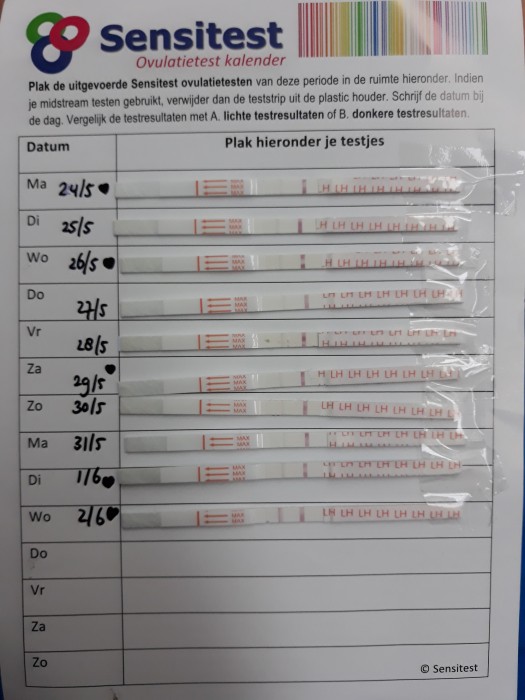 Sensitest
Ovulatietest kalender
Plak de uitgevoerde Sensitest ovulatietesten van deze periode in de ruimte hieronder. Indien
je midstream testen gebruikt, verwijder dan de teststrip uit de plastic houder. Schrijf de datum bij
de dag. Vergelijk de testresultaten met A. lichte testresultaten of B. donkere testresultaten.
Datum Plak hieronder je testjes
Ma 24/5 MAX MAX MAX H LH LH LH LH LH LH LH
Di 25/5 MAX MAX MAX LH LH LH LH LH LH LH
Wo 26/5 MAX MAX MAX LH LH LH LH LH LH LH
Do 27/5 MAX MAX MAX LH LH LH LH LH LH LH
Vr 28/5 MAX MAX MAX
Za 29/5 MAX MAX MAX H LH LH LH LH LH LH LH
Zo 30/5 MAX MAX MAX LH LH LH LH LH LH LH
Ma 31/5 MAX MAX MAX LH LH LH LH LH
Di 1/6 MAX MAX MAX LH LH LH LH LH LH LH
Wo 2/6 MAX MAX LH LH LH LH LH LH LH LH
Do
Vr
Za
Zo
© Sensitest